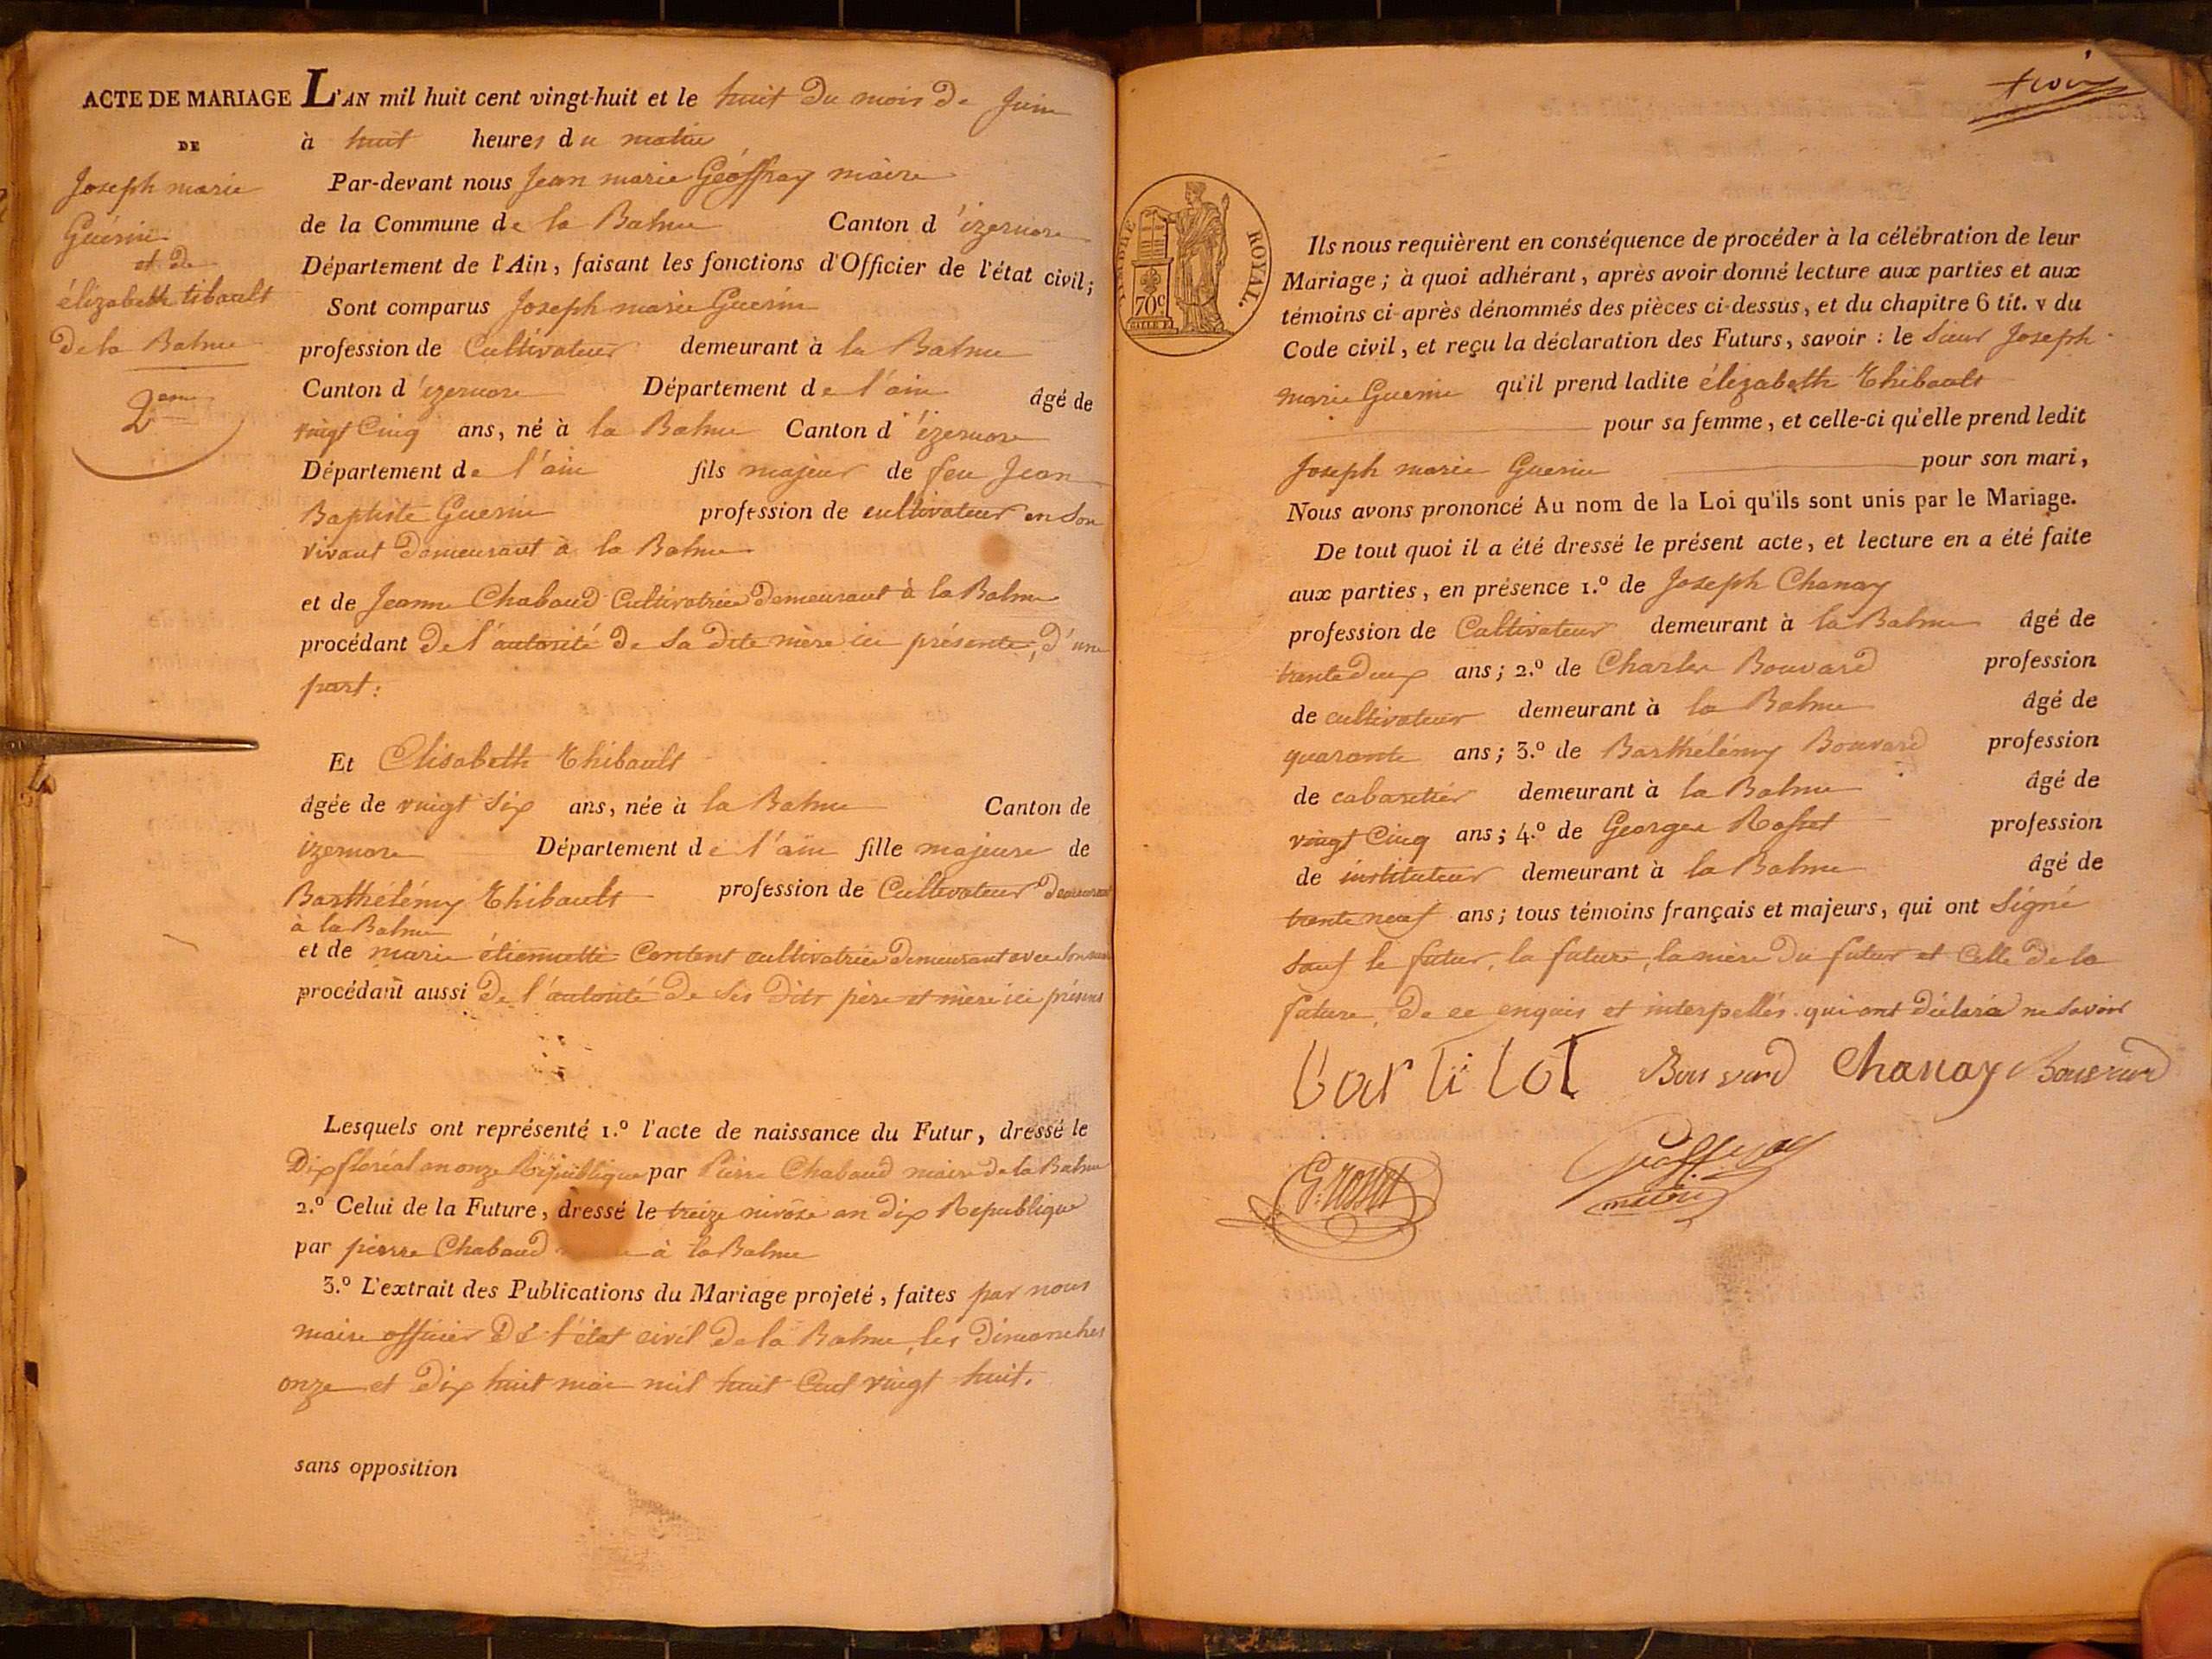 ACTE DE MARIAGE
DE
Joseph marie
Guérin
et de
élizabeth tibault
de la Balme
2eme
L'AN mil huit cent vingt-huit et le huit du mois de Juin
à huit heures du matin
Par-devant nous Jean marie Géoffray maire
de la Commune de la Balme Canton d'izernore
Département de l'Ain, faisant les fonctions d'Officier de l'état civil;
Sont comparus Joseph marie Guerin
profession de Cultivateur demeurant à la Balme
Canton d'izernore Département de l'ain âgé de
vingt Cinq ans, né à la Balme Canton d'izernore
Département de l'ain fils majeur de feu Jean
Baptiste Guerin profession de cultivateur en son
vivant demeurant à la Balme
et de Jeanne Chabaud Cultivatrice demeurant à la Balme
procédant de l'autorité de sa dite mère ici présente, d'une
part:
Et Elisabeth Thibault
âgée de vingt six ans, née à la Balme Canton de
izernore Département de l'ain fille majeure de
Barthélémy Thibault profession de Cultivateur demeurant
à la Balme
et de marie étiennette Content cultivatrice demeurant avec son mari
procédant aussi de l'autorité de ses dits père et mère ici présens
Lesquels ont représenté 1.º l'acte de naissance du Futur, dressé le
Dix floréal an onze République par Pierre Chabaud maire de la Balme
2.º Celui de la Future, dressé le treize nivôse an dix Republique
par pierre Chabaud à la Balme
3.º L'extrait des Publications du Mariage projeté, faites par nous
maire officier de l'état civil de la Balme, les dimanches
onze et dix huit mai mil huit Cent vingt huit.
sans opposition
trois
TIMBRE ROYAL.
70c
Ils nous requièrent en conséquence de procéder à la célébration de leur
Mariage; à quoi adhérant, après avoir donné lecture aux parties et aux
témoins ci-après dénommés des pièces ci-dessus, et du chapitre 6 tit. v du
Code civil, et reçu la déclaration des Futurs, savoir: le sieur Joseph
marie Guerin qu'il prend ladite élizabeth Thibault
pour sa femme, et celle-ci qu'elle prend ledit
Joseph marie Guerin pour son mari,
Nous avons prononcé Au nom de la Loi qu'ils sont unis par le Mariage.
De tout quoi il a été dressé le présent acte, et lecture en a été faite
aux parties, en présence 1.º de Joseph Chanay
profession de Cultivateur demeurant à la Balme âgé de
trente deux ans; 2.º de Charles Bouvard profession
de cultivateur demeurant à la Balme âgé de
quarante ans; 3.º de Barthélémy Bouvard profession
de cabaretier demeurant à la Balme âgé de
vingt Cinq ans; 4.º de George Rosset profession
de instituteur demeurant à la Balme âgé de
trente neuf ans; tous témoins français et majeurs, qui ont signé
sauf le futur, la future, la mère du futur et Celle de la
future, de ce enquis et interpellés qui ont déclaré ne savoir
Bouvard Chanay Bouvard
G. Rosset Geoffray
maire